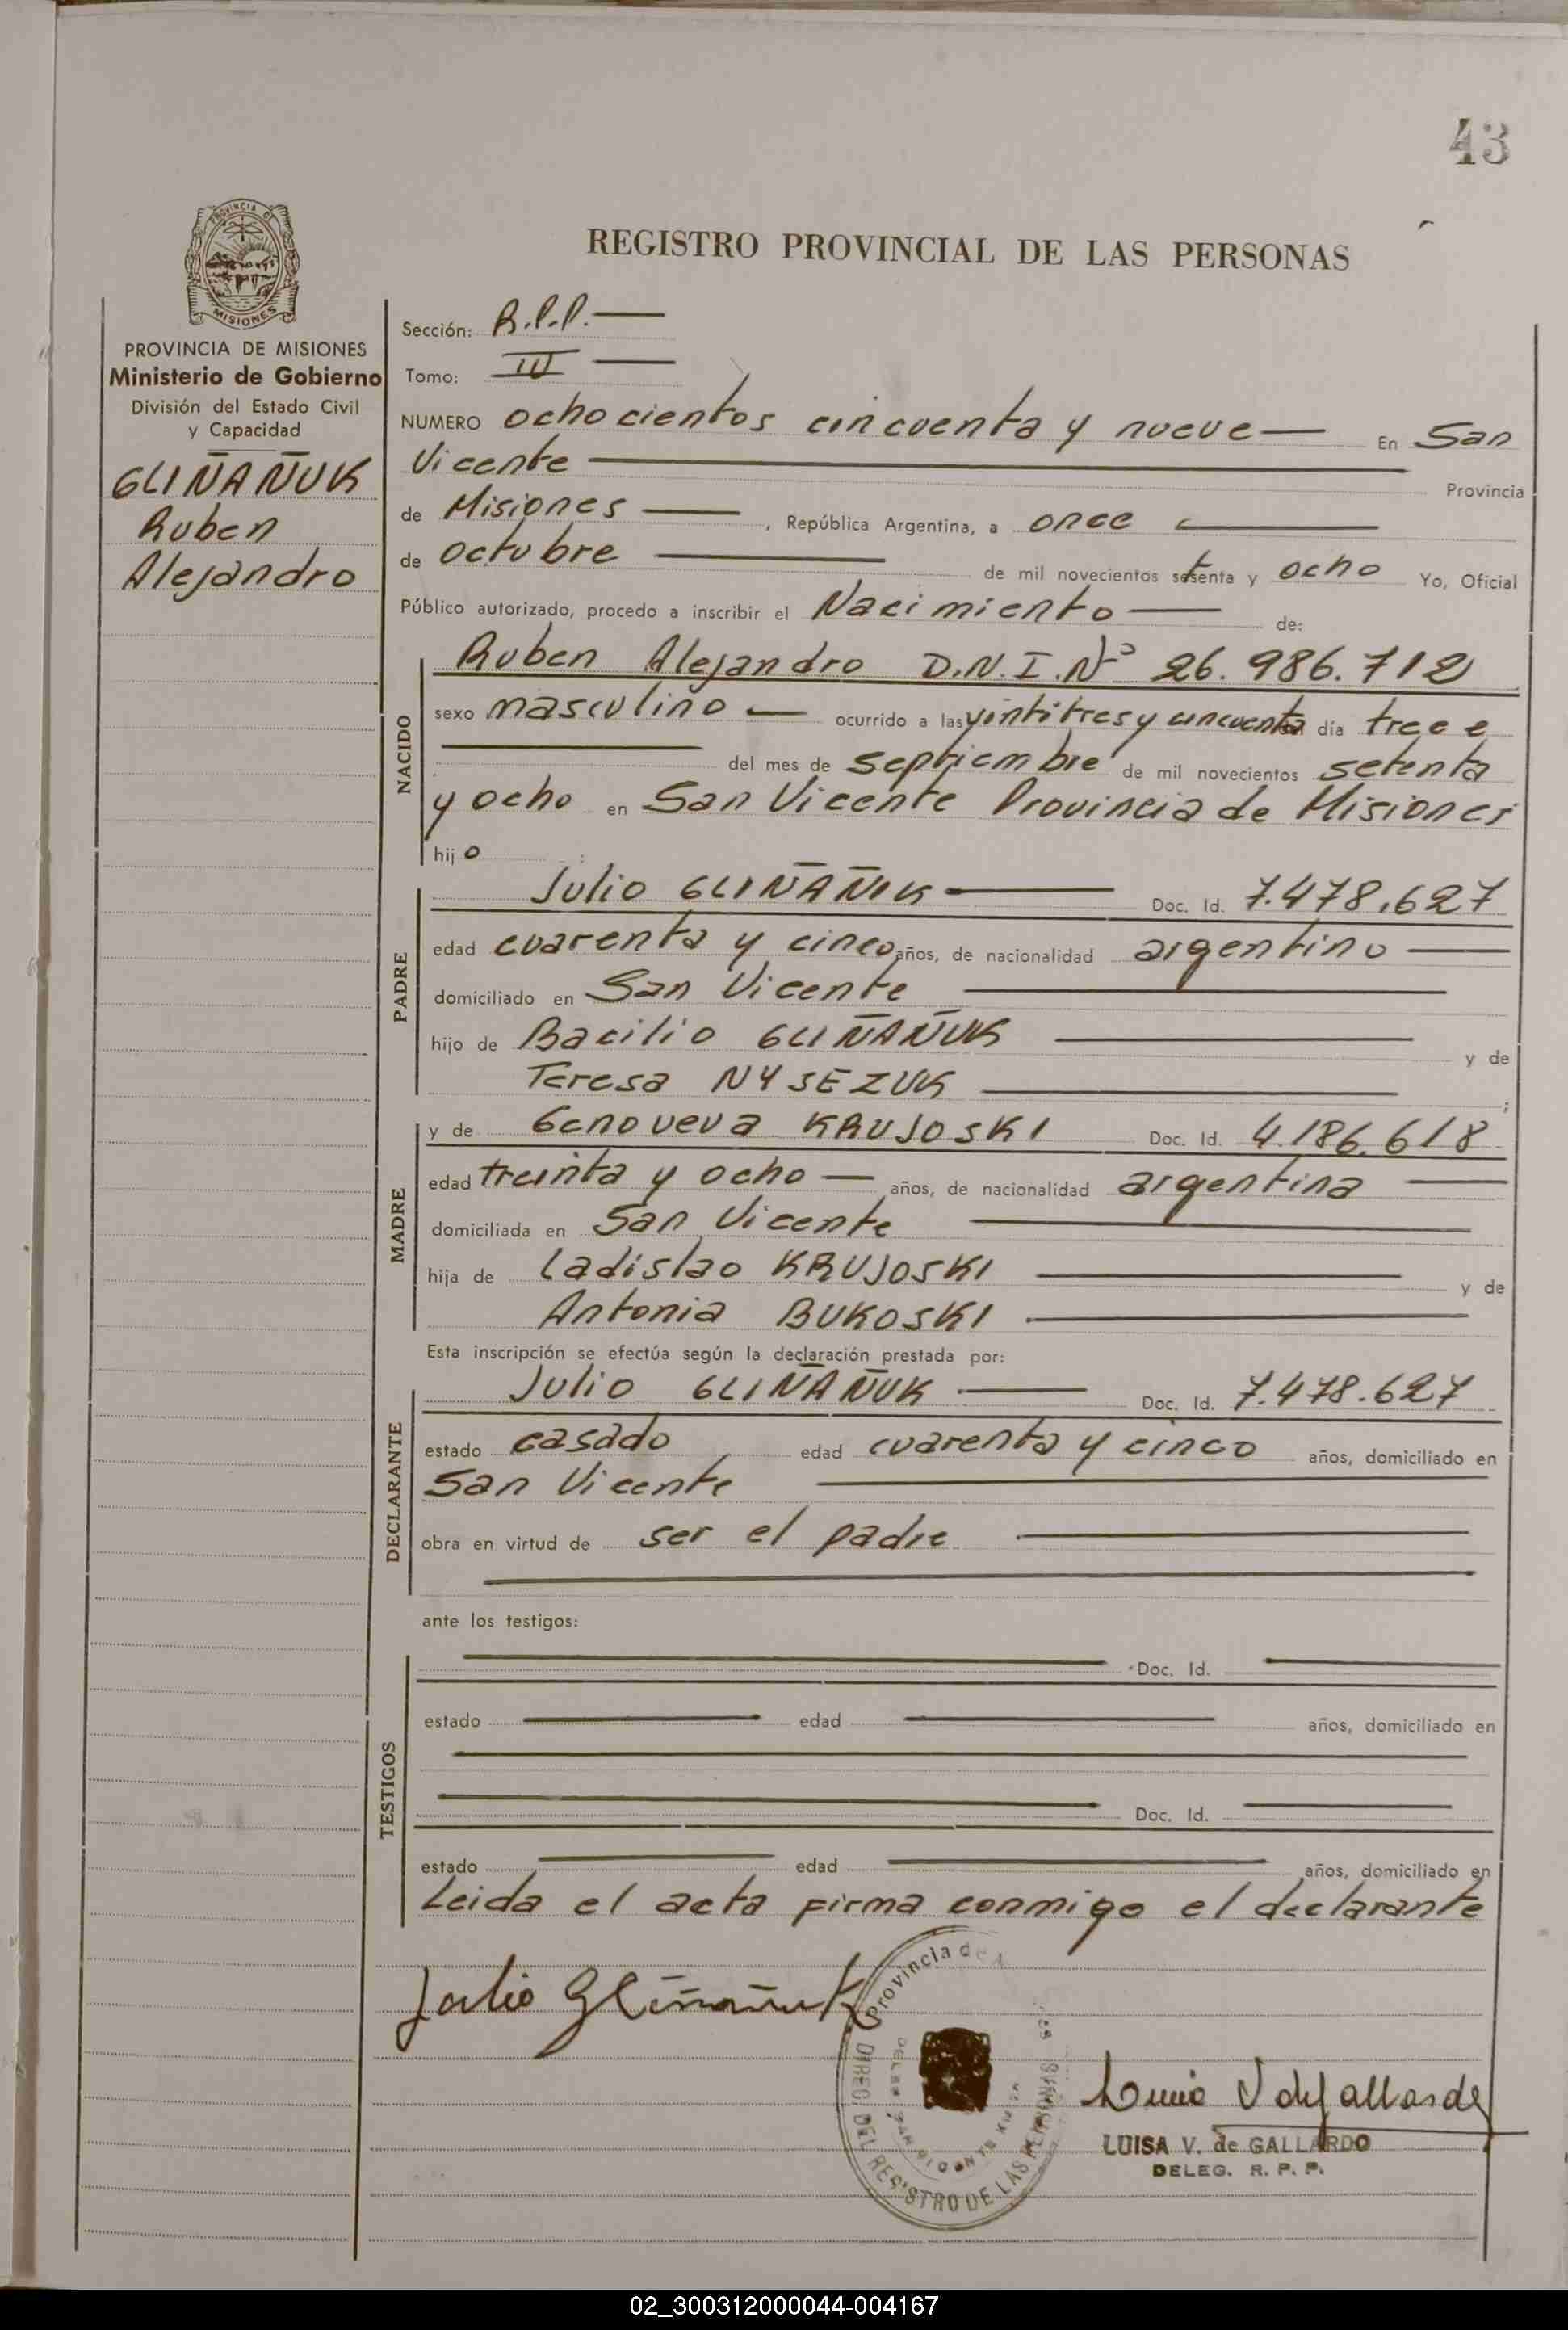 43
REGISTRO PROVINCIAL DE LAS PERSONAS
PROVINCIA DE
MISIONES
PROVINCIA DE MISIONES
Ministerio de Gobierno
División del Estado Civil
y Capacidad
GLIÑAÑUK
Ruben
Alejandro
Sección: R.P.P.
Tomo: III
NUMERO ochocientos cincuenta y nueve En San
Vicente Provincia
de Misiones, República Argentina, a once
de octubre de mil novecientos setenta y ocho Yo, Oficial
Público autorizado, procedo a inscribir el Nacimiento de:
NACIDO
Ruben Alejandro D.N.I.Nº 26.986.712
sexo masculino ocurrido a las vintitres y cincuenta día trece
del mes de septiembre de mil novecientos setenta
y ocho en San Vicente Provincia de Misiones
hijo
PADRE
Julio GLIÑAÑUK Doc. Id. 7.478.627
edad cuarenta y cinco años, de nacionalidad argentino
domiciliado en San Vicente
hijo de Bacilio GLIÑAÑUK y de
Teresa NYSEZUK ;
MADRE
y de Genoveva KRUJOSKI Doc. Id. 4.186.618
edad treinta y ocho años, de nacionalidad argentina
domiciliada en San Vicente
hija de Ladislao KRUJOSKI y de
Antonia BUKOSKI
Esta inscripción se efectúa según la declaración prestada por:
DECLARANTE
Julio GLIÑAÑUK Doc. Id. 7.478.627
estado casado edad cuarenta y cinco años, domiciliado en
San Vicente
obra en virtud de ser el padre
ante los testigos:
TESTIGOS
Doc. Id.
estado edad años, domiciliado en
Doc. Id.
estado edad años, domiciliado en
Leida el acta firma conmigo el declarante
Julio Gliñañuk
Provincia de
DIREC. DEL REGISTRO DE LAS PERSONAS
LUISA V. de GALLARDO
DELEG. R. P. P.
02_300312000044-004167